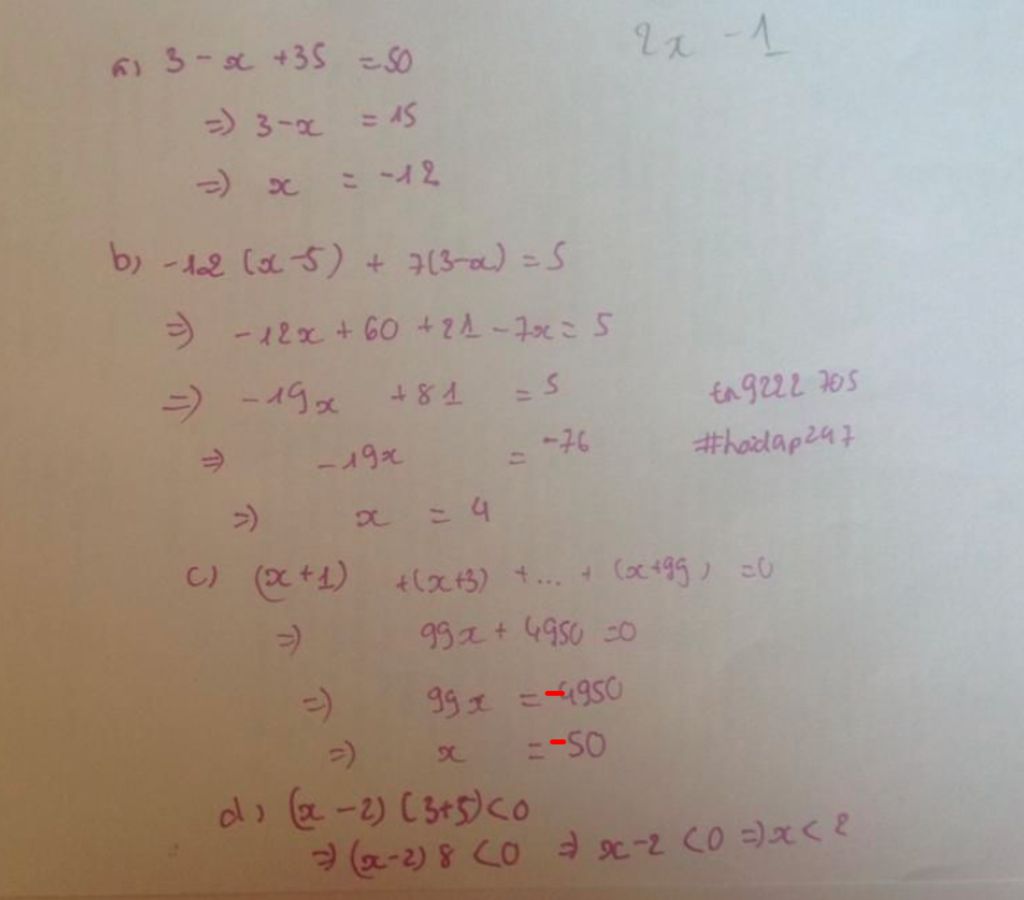 2x - 1
a) 3 - x + 35 = 50
=) 3 - x = 15
=) x = -12
b) -12 (x - 5) + 7(3 - x) = 5
=) -12x + 60 + 21 - 7x = 5
=) -19x + 81 = 5
tn9222 705
=) -19x = -76
#hoidap247
=) x = 4
c) (x + 1) + (x + 3) + ... + (x + 99) = 0
=) 99x + 4950 = 0
=) 99x = -4950
=) x = -50
d) (x - 2) (3 + 5) < 0
=) (x - 2) 8 < 0 =) x - 2 < 0 =) x < 2